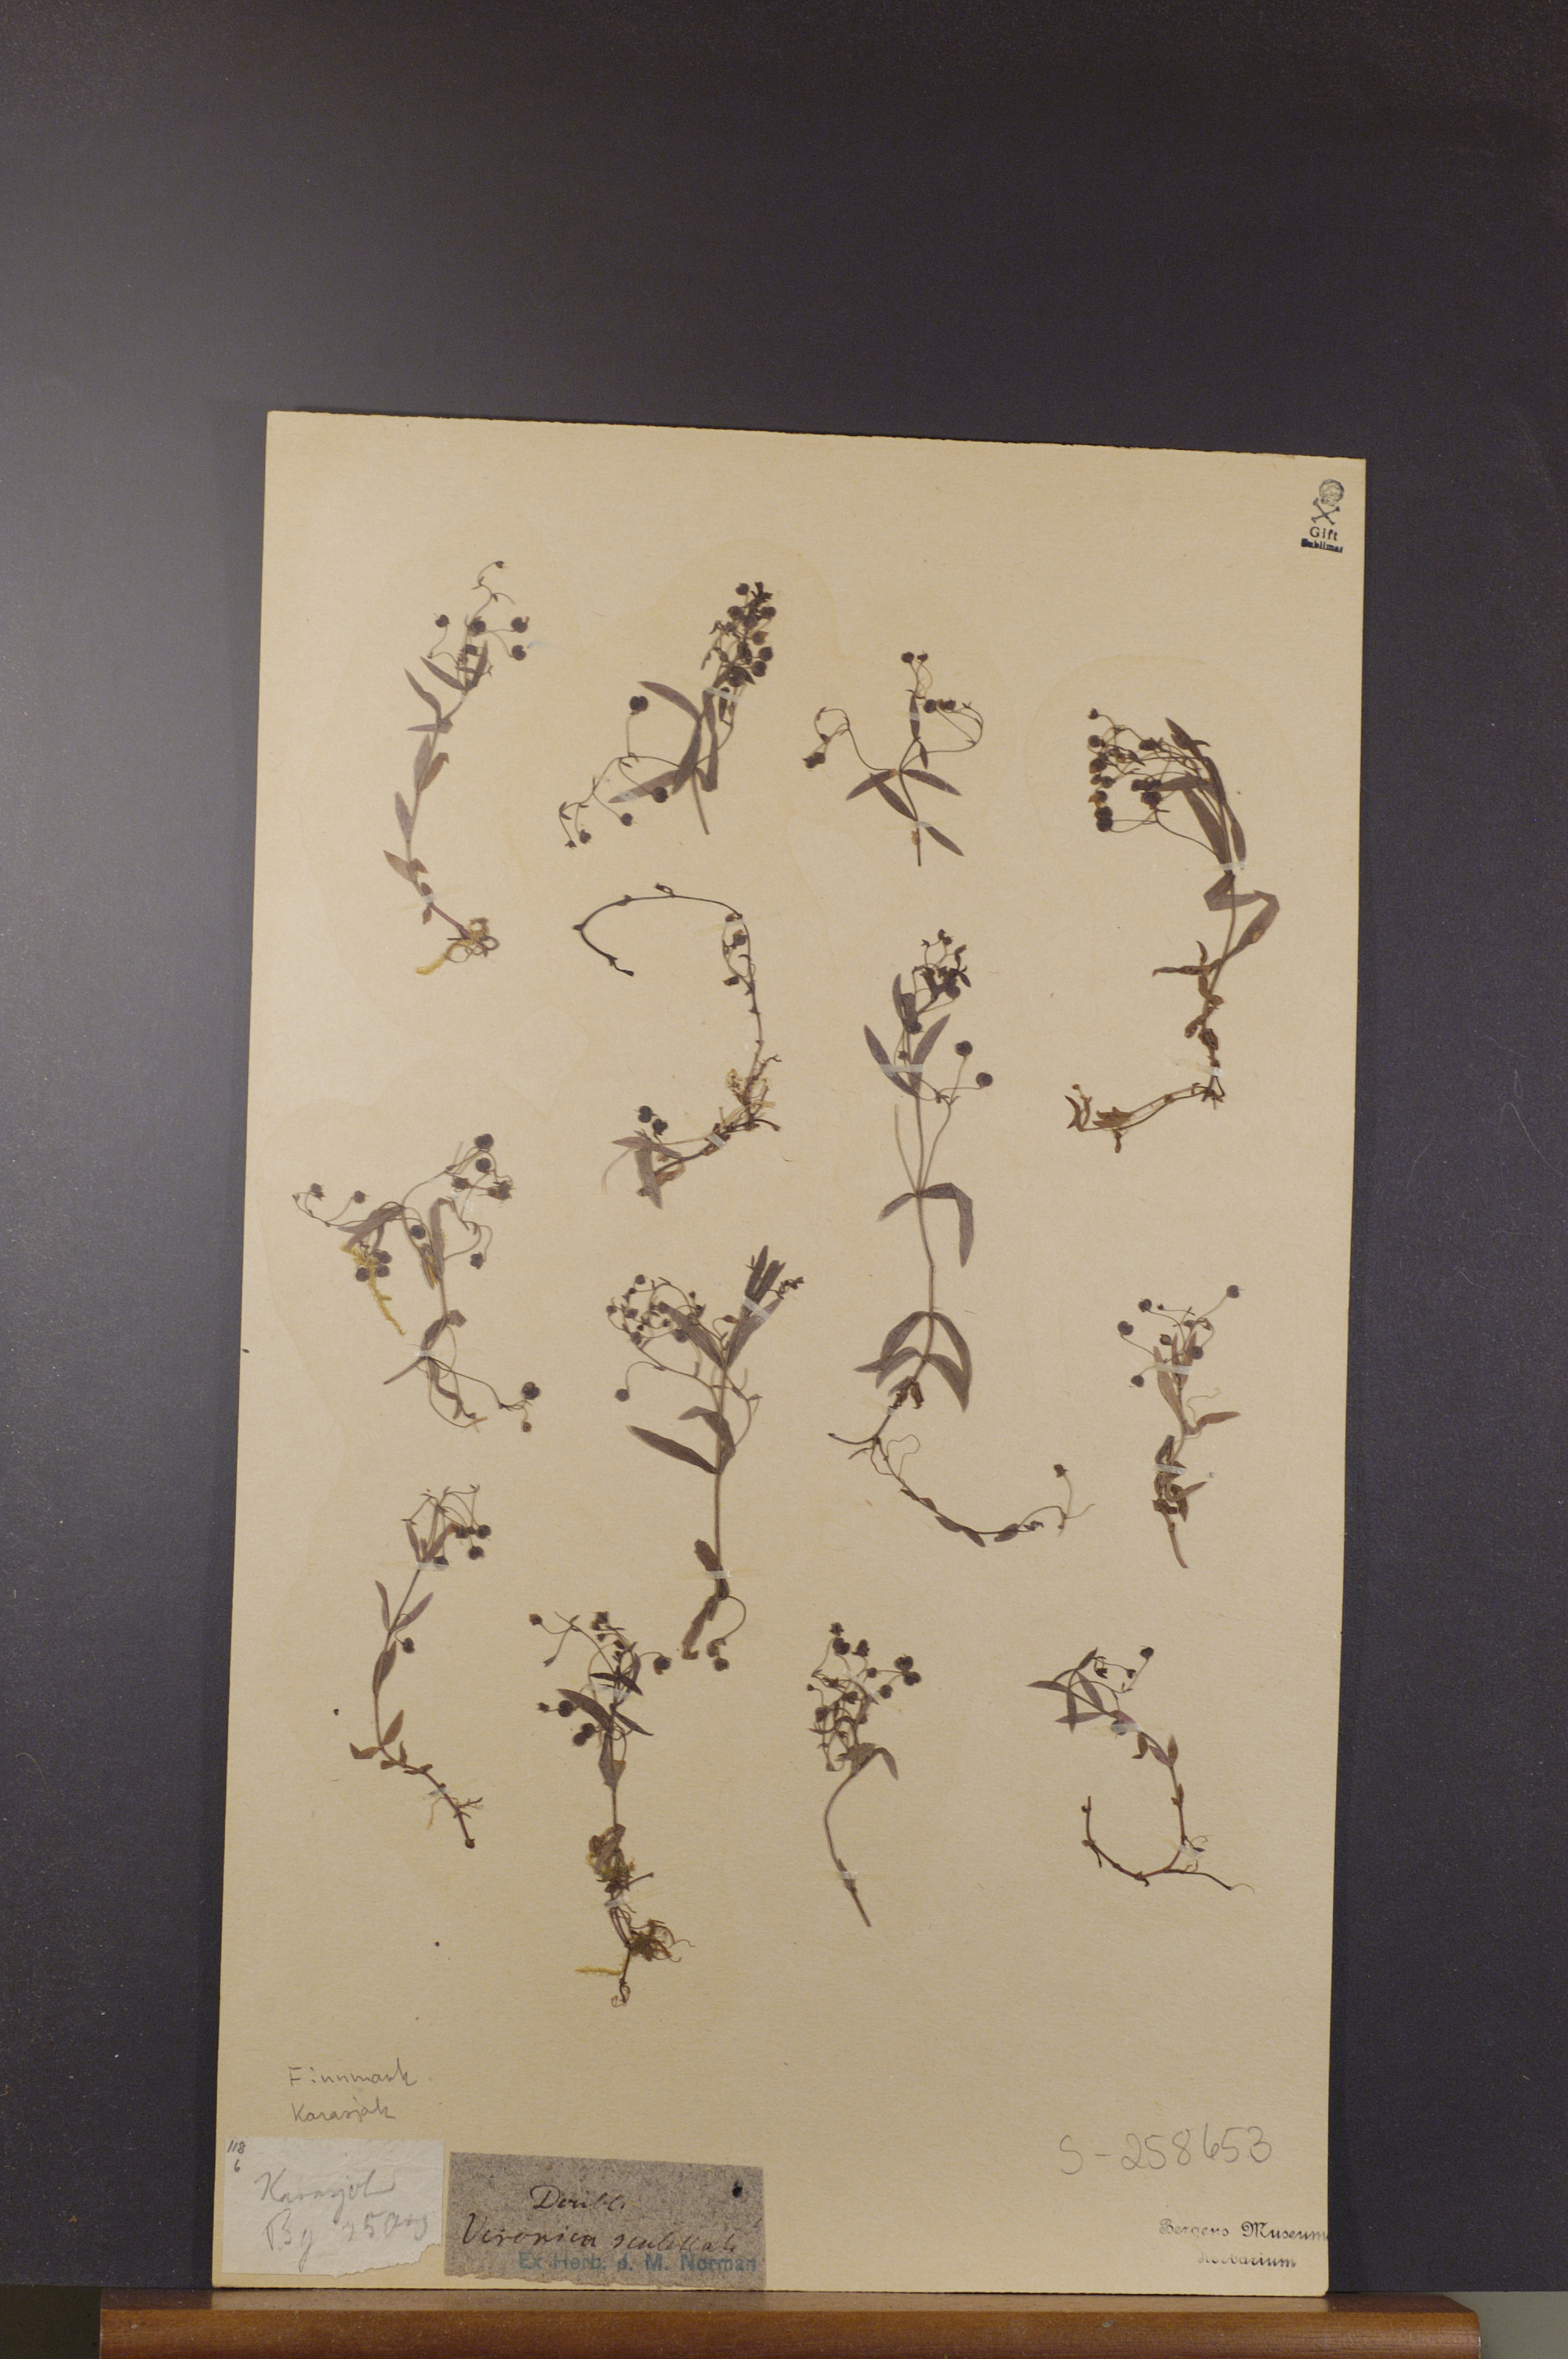 Gift
Sublimat
Finnmark
Karasjok
118
6
Karasjok
By 25 Aug
S-258653
Doubl.
Veronica scutellata
Ex Herb. J. M. Norman
Bergens Museum
Herbarium